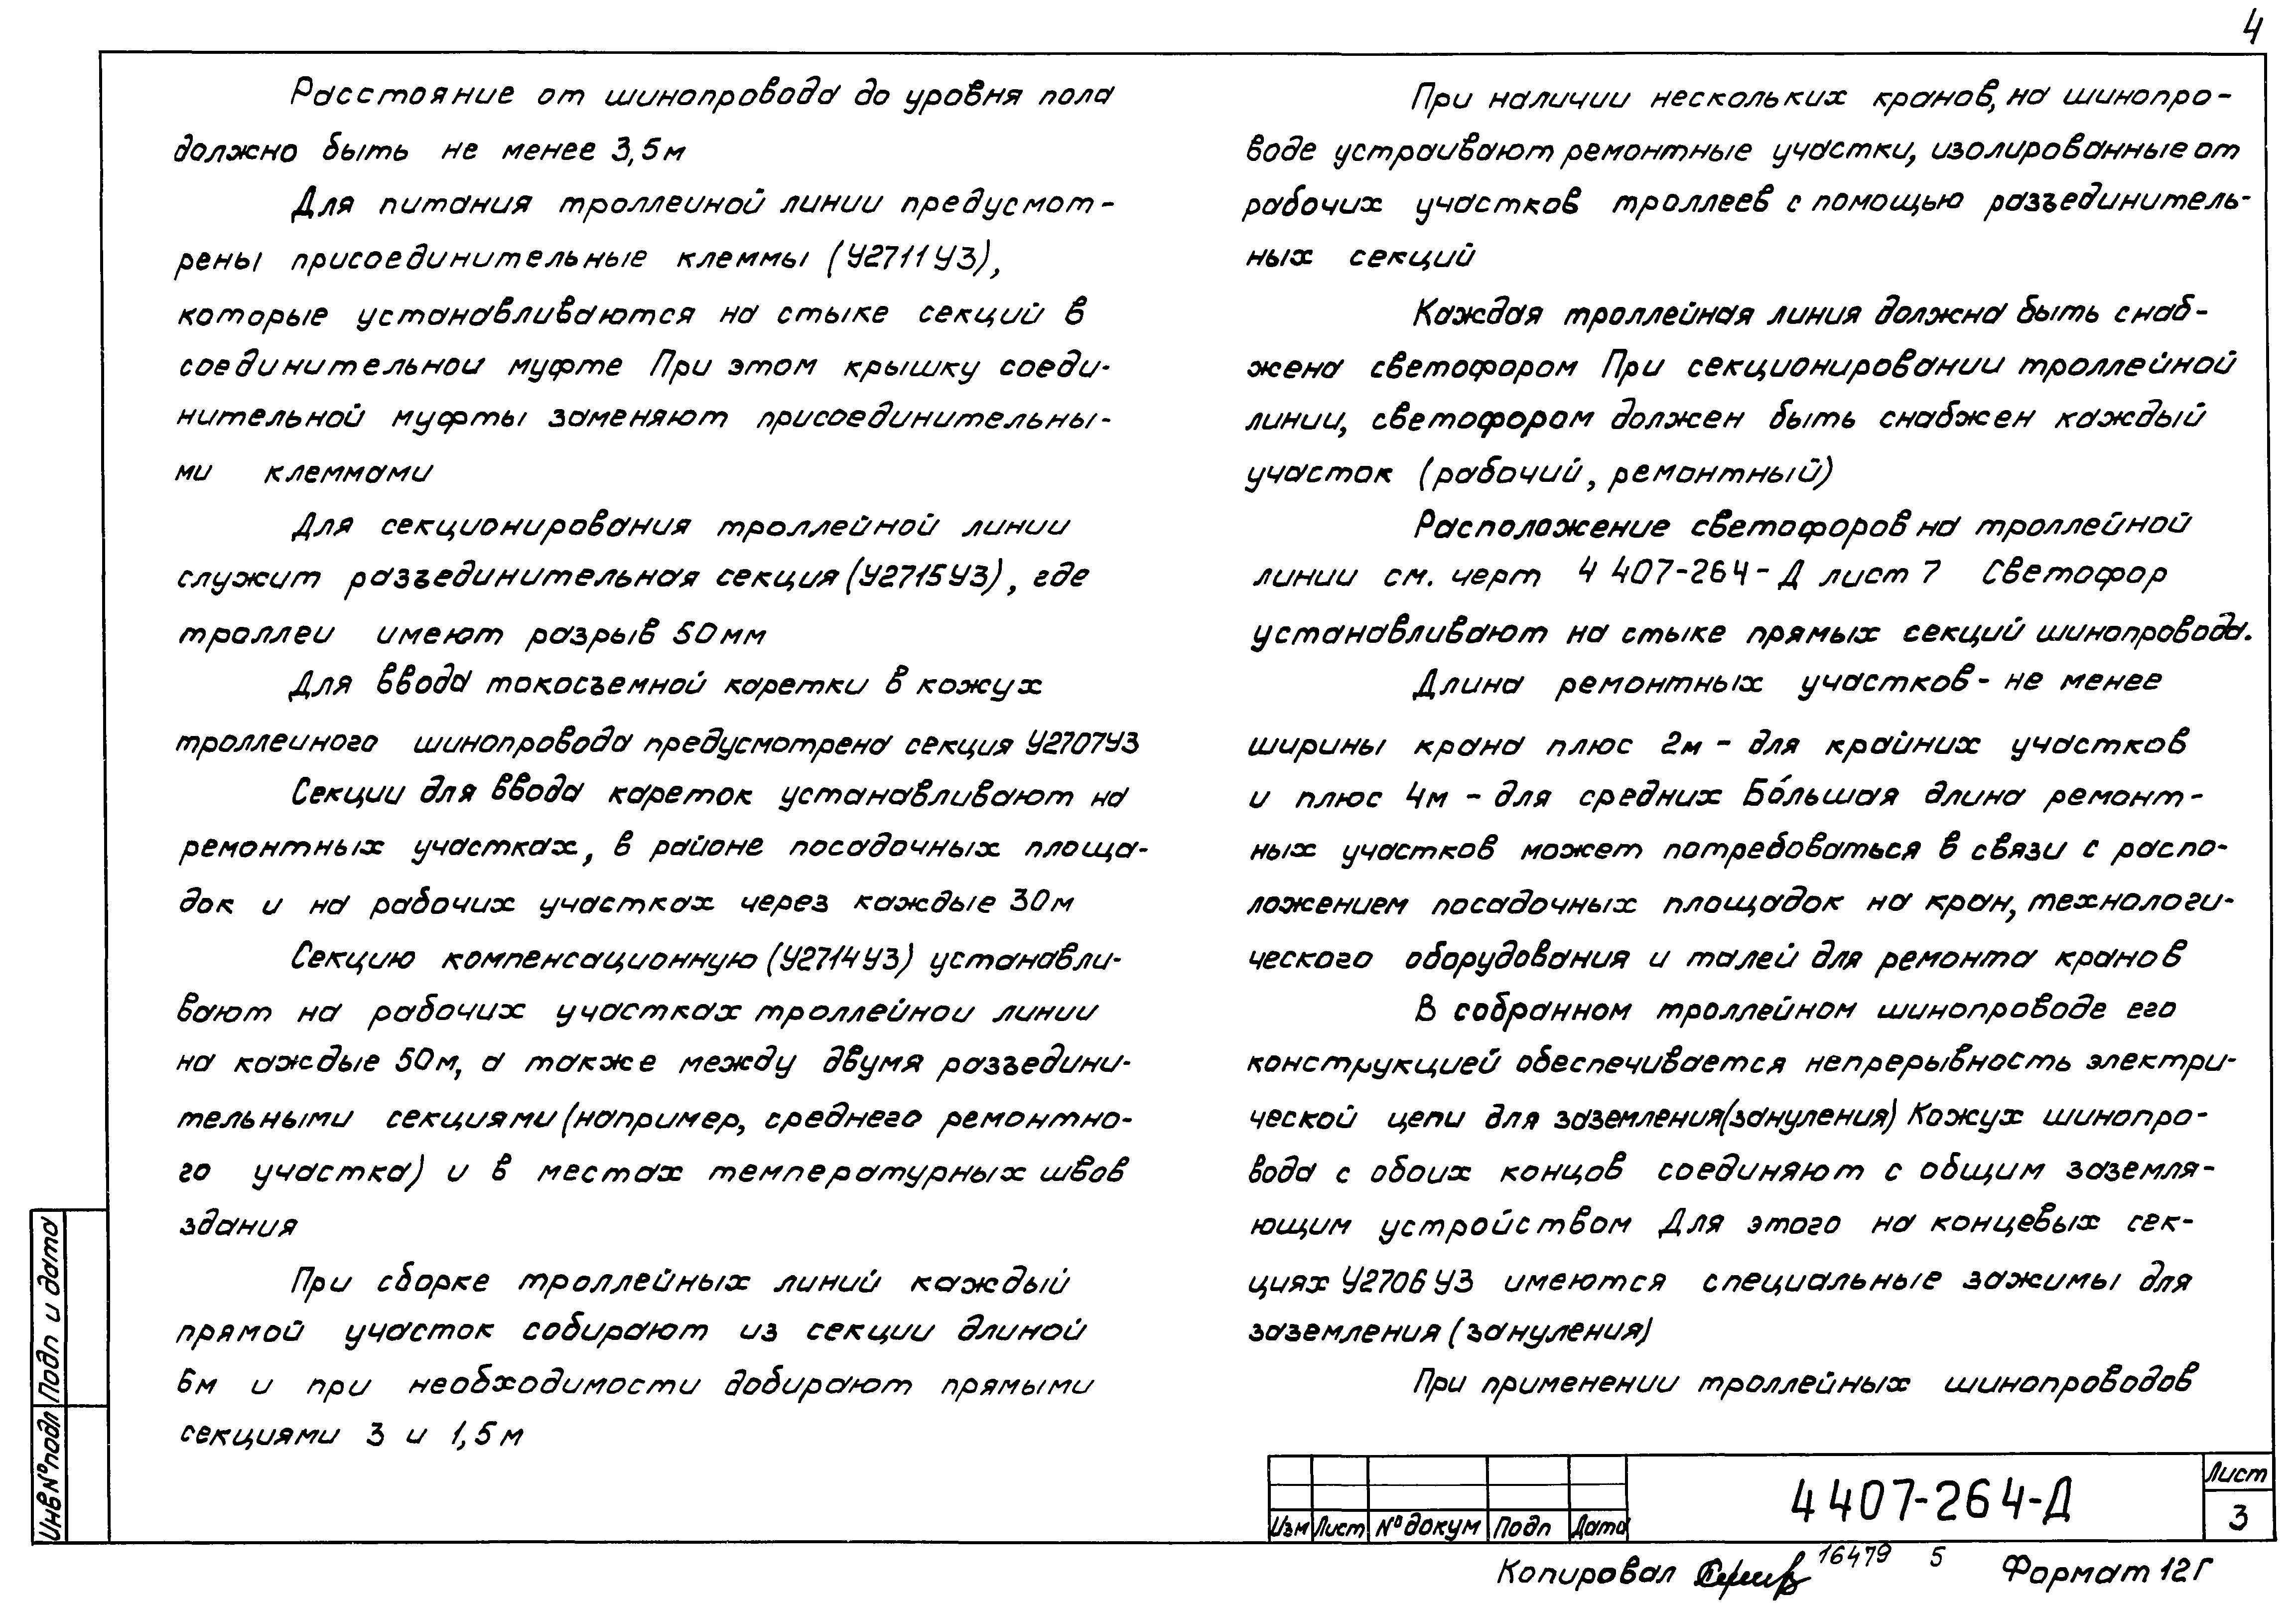 4
Расстояние от шинопровода до уровня пола
должно быть не менее 3,5м
Для питания троллеиной линии предусмот-
рены присоединительные клеммы (У2711У3),
которые устанавливаются на стыке секций в
соединительнои муфте При этом крышку соеди-
нительной муфты заменяют присоединительны-
ми клеммами
Для секционирования троллейной линии
служит разъединительная секция (У2715У3), где
троллеи имеют разрыв 50мм
Для ввода токосъемной каретки в кожух
троллеиного шинопровода предусмотрена секция У2707У3
Секции для ввода кареток устанавливают на
ремонтных участках, в районе посадочных площа-
док и на рабочих участках через каждые 30м
Секцию компенсационную (У2714У3) устанавли-
вают на рабочих участках троллейнои линии
на каждые 50м, а также между двумя разъедини-
тельными секциями (например, среднего ремонтно-
го участка) и в местах температурных швов
здания
При сборке троллейных линий каждый
прямой участок собирают из секции длиной
6м и при необходимости добирают прямыми
секциями 3 и 1,5м
При наличии нескольких кранов, на шинопро-
воде устраивают ремонтные участки, изолированные от
рабочих участков троллеев с помощью разъединитель-
ных секций
Каждая троллейная линия должна быть снаб-
жена светофором При секционировании троллейной
линии, светофором должен быть снабжен каждый
участок (рабочий, ремонтный)
Расположение светофоров на троллейной
линии см. черт 4 407-264-Д лист 7 Светофор
устанавливают на стыке прямых секций шинопровода.
Длина ремонтных участков - не менее
ширины крана плюс 2м - для крайних участков
и плюс 4м - для средних Бо́льшая длина ремонт-
ных участков может потребоваться в связи с распо-
ложением посадочных площадок на кран, технологи-
ческого оборудования и талей для ремонта кранов
В собранном троллейном шинопроводе его
конструкцией обеспечивается непрерывность электри-
ческой цепи для заземления (зануления) Кожух шинопро-
вода с обоих концов соединяют с общим заземля-
ющим устройством Для этого на концевых сек-
циях У2706У3 имеются специальные зажимы для
заземления (зануления)
При применении троллейных шинопроводов
Подп и дата
Инв №подл
Изм Лист №докум Подп Дата
4 407-264-Д
Лист
3
Копировал 16479 5 Формат 12Г